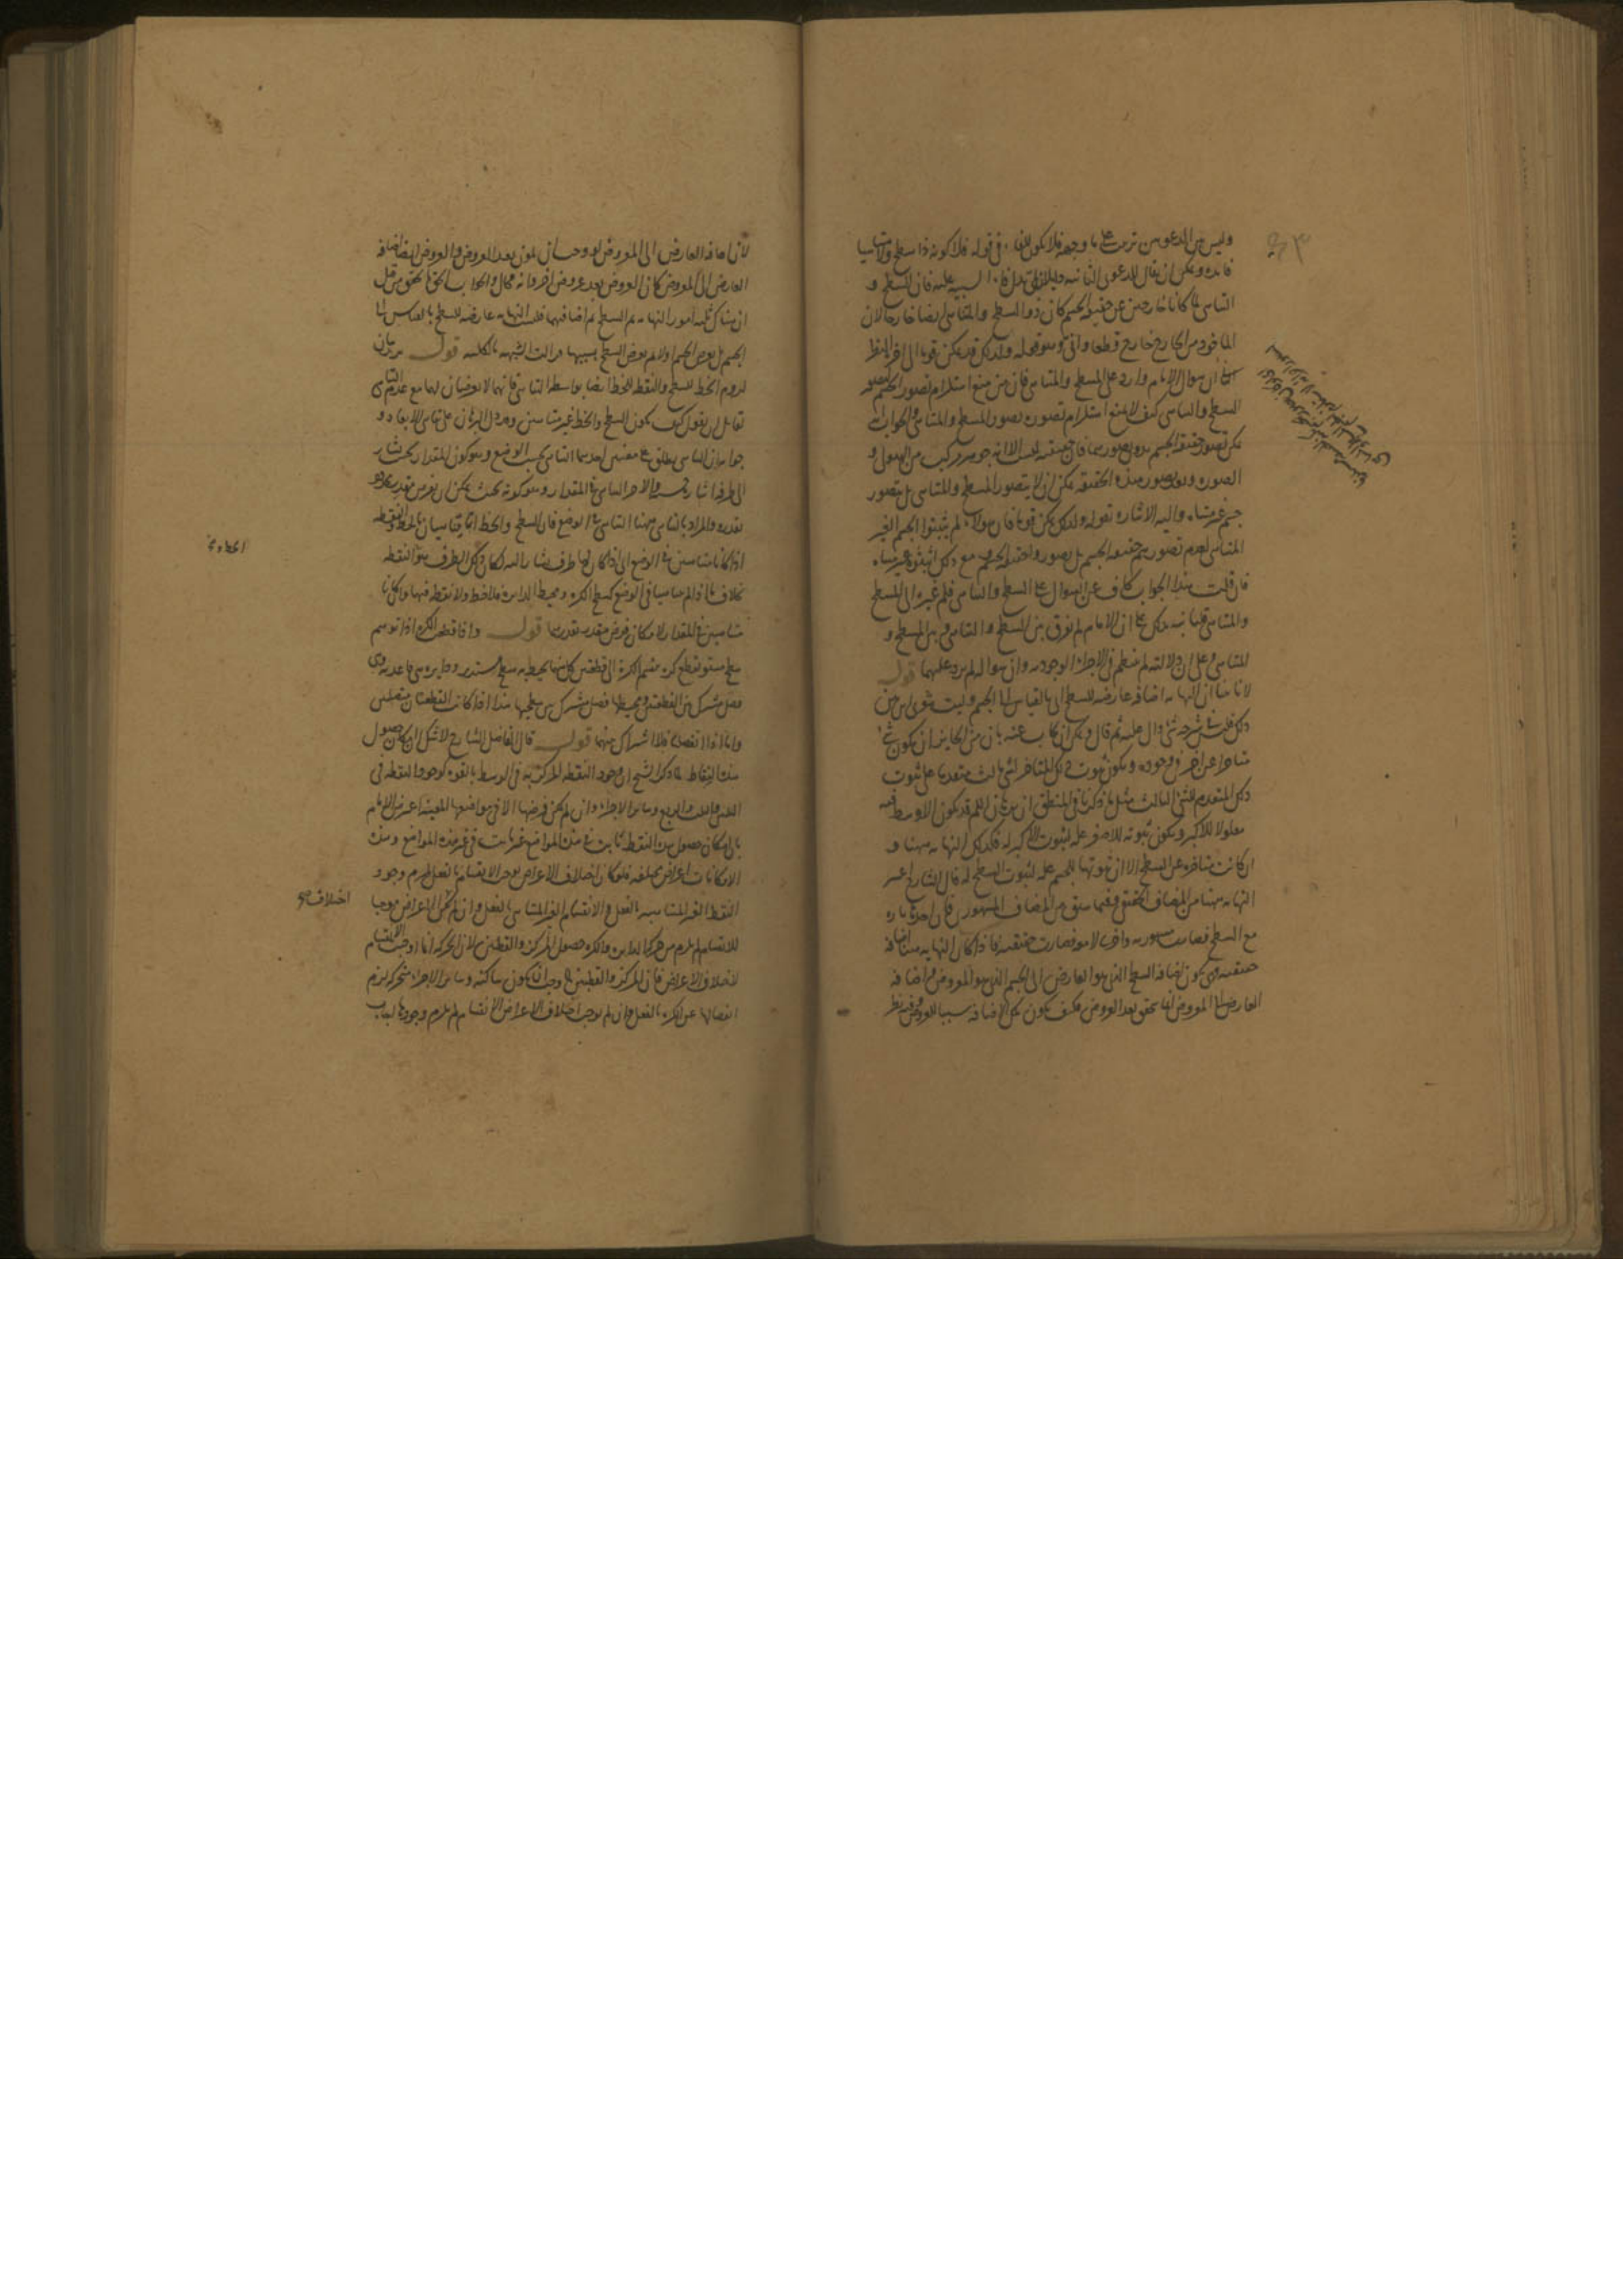 وليس بين الدعويين ترتب على ما وجهه فلا يكون للفاء في قوله فلا كونه ذا سطح ولا متناهيا
فائدة ويمكن ان يقال الدعوى الثانية
التناهي لما كانا خارجين عن حقيقة الجسم كان ذو السطح والمتناهي ايضا خارجا لان
الماخوذ من الخارج خارج قطعا واتى وهو قوله ولذلك قد يمكن قوما الى اخره النظر
ان سوال الامام وارد على المسطح والمتناهي فان من منع استلزام تصور الجسم تصور
السطح والتناهي كيف لا يمنع استلزام تصوره تصور المسطح والمتناهي والجواب انه
يمكن تصور حقيقة الجسم بدون تصورهما فان حقيقته ليست الا انه جوهر مركب من الهيولى و
الصورة وبعد تصور هذه الحقيقة يمكن ان لا يتصور المسطح والمتناهي بل يتصور
جسم غير متناه واليه الاشارة بقوله ولذلك يمكن قوما فان هولاء لم يثبتوا الجسم الغير
المتناهي لعدم تصورهم حقيقة الجسم بل تصوروا حقيقة الجسم مع ذلك اثبتوه غير متناه
فان قلت هذا الجواب كاف عن السوال على السطح والتناهي فلم غيره الى المسطح
والمتناهي قلنا نبه بذلك على ان الامام لم يفرق بين السطح والتناهي وبين المسطح و
المتناهي وعلى ان دلالته لم تنتظم في الاجزاء الوجودية وان سواله لم يرد عليهما قوله
لانا بينا ان النهاية اضافة عارضة للسطح اى بالقياس الى الجسم وليت شعرى اين بين
ذلك قلت في شرحه شى دال عليه ثم قال ويمكن ان يجاب عنه بان من الجايز ان يكون شى
متاخرا عن اخر في وجوده ويكون ثبوت ذلك المتاخر لشى ثالث متقدما على ثبوت
ذلك المتقدم للشى الثالث مثل ما ذكرنا في المنطق ان برهان اللم قد يكون الاوسط فيه
معلولا للاكبر ويكون ثبوته للاصغر علة لثبوت الاكبر له فكذلك النهاية ههنا و
ان كانت متاخرة عن السطح الا ان ثبوتها للجسم علة لثبوت السطح له قال الشارح
النهاية ههنا من المضاف الحقيقي وفيما سبق من المضاف المشهورى فان اخذت تارة
مع السطح فصارت مشهورية واخرى لا معه فصارت حقيقية فاذا كان النهاية ههنا اضافة
حقيقية وهي يكون اضافة السطح الذى هو العارض الى الجسم الذى هو المعروض واضافة
العارض الى المعروض انما يتحقق بعد العروض فكيف يكون تلك الاضافة سببا للعروض وفيه نظر
لان اضافة العارض الى المعروض لو وجب ان يكون بعد العروض والعروض ايضا اضافة
العارض الى المعروض كان العروض بعد عروض اخر وانه محال والجواب الحق ما تحقق من قبل
ان هناك ثلثة امور النهاية ثم السطح ثم اضافتهما فليست النهاية عارضة للسطح بالقياس الى
الجسم بل يعرض الجسم اولا ثم يعرض السطح بسببها فزالت الشبهة بالكلية قوله يريد بيان
لزوم الخط للسطح والنقطة للخط ايضا بواسطة التناهي فانهما لا يعرضان لهما مع عدم التناهي
لقايل ان يقول كيف يكون السطح والخط غير متناهيين وقد دل البرهان على تناهي الابعاد و
جوابه ان التناهي يطلق على معنيين احدهما التناهي بحسب الوضع وهو كون المقدار بحيث يشار
الى طرفه اشارة حسية والاخر التناهي في المقدار وهو كونه بحيث يمكن ان يفرض مقدر محدود
بقدره والمراد بالتناهي ههنا التناهي في الوضع فان السطح والخط انما يتناهيان بالخط والنقطة
اذا كانا متناهيين في الوضع اى اذا كان لهما طرف يشار اليه لكان ذلك الطرف هو النقطة
بخلاف ما اذا لم يتناهيا في الوضع كسطح الكرة ومحيط الدايرة فلا خط ولا نقطة فيهما وان كانا
متناهيين في المقدار لامكان فرض مقدر بقدرهما قوله واذا قطعت الكرة اذا توهم
سطح مستو يقطع كرة ينقسم الكرة الى قطعتين كل منهما يحيط به سطح مستدير ودايرة هي قاعدته وهي
فصل مشترك بين القطعتين ومحيطها فصل مشترك بين سطحيهما هذا اذا كانت القطعتان متصلتين
واما اذا انفصلتا فلا اشتراك بينهما قوله قال الفاضل الشارح لا شك ان امكان حصول
هذه النقاط لما ذكر الشيخ ان وجود النقطة المركزية في الوسط بالقوة كوجود النقطة في
الثلثين والثلث والربع وساير الاجزاء وان لم يمكن فرضها الا في مواضعها المعينة اعترض الامام
بان امكان حصول هذه النقطة ثابت في هذه المواضع غير ثابت في غير هذه المواضع وهذه
الامكانات اعراض مختلفة فلو كان اختلاف الاعراض يوجب الانقسام بالفعل لزم وجود
النقط الغير المتناهية بالفعل والانقسام الغير المتناهي بالفعل وان لم يكن الاعراض موجبا
للانقسام لم يلزم من حركة الدايرة والكرة حصول المركز والقطبين لان الحركة انما اوجبت الانقسام
لاختلاف الاعراض فان المركز والقطبين يوجب ان يكون ساكنة وساير الاجزاء متحركة لزم
انفصالها عن الكرة بالفعل وان لم يوجب اختلاف الاعراض الانقسام لم يلزم وجودها
اختلاف صح